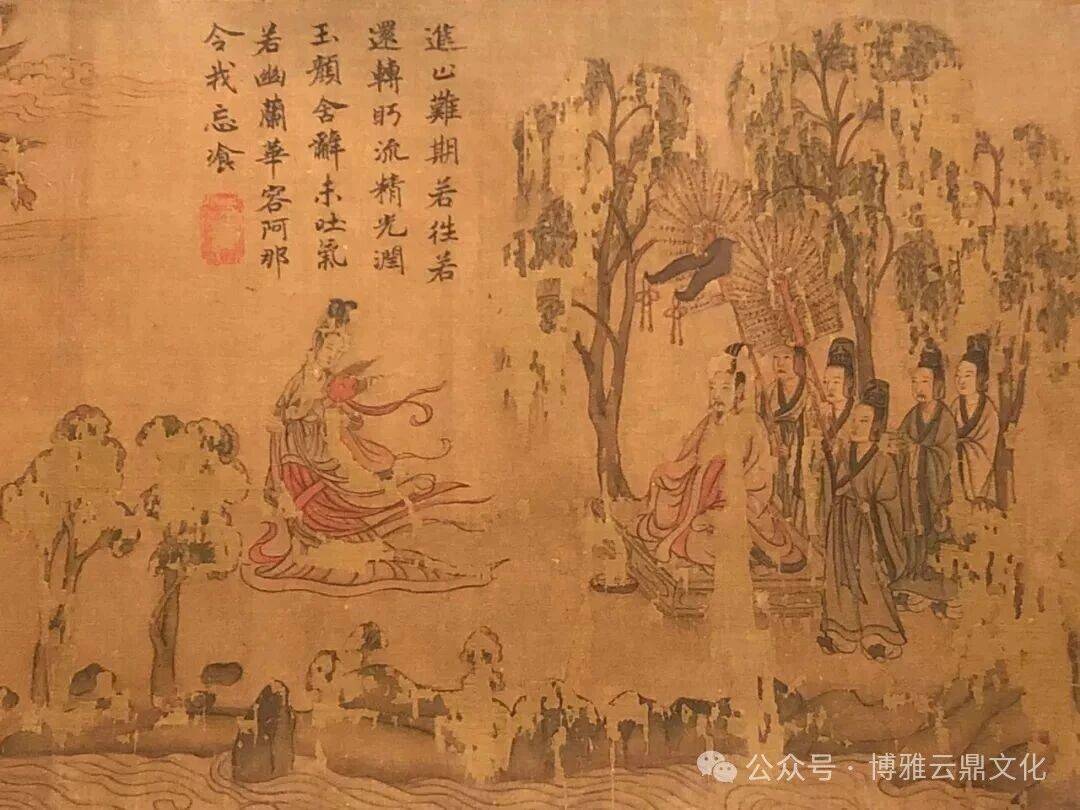 進止難期若往若
還轉眄流精光潤
玉顏含辭未吐氣
若幽蘭華容阿那
令我忘飡
公众号 · 博雅云鼎文化